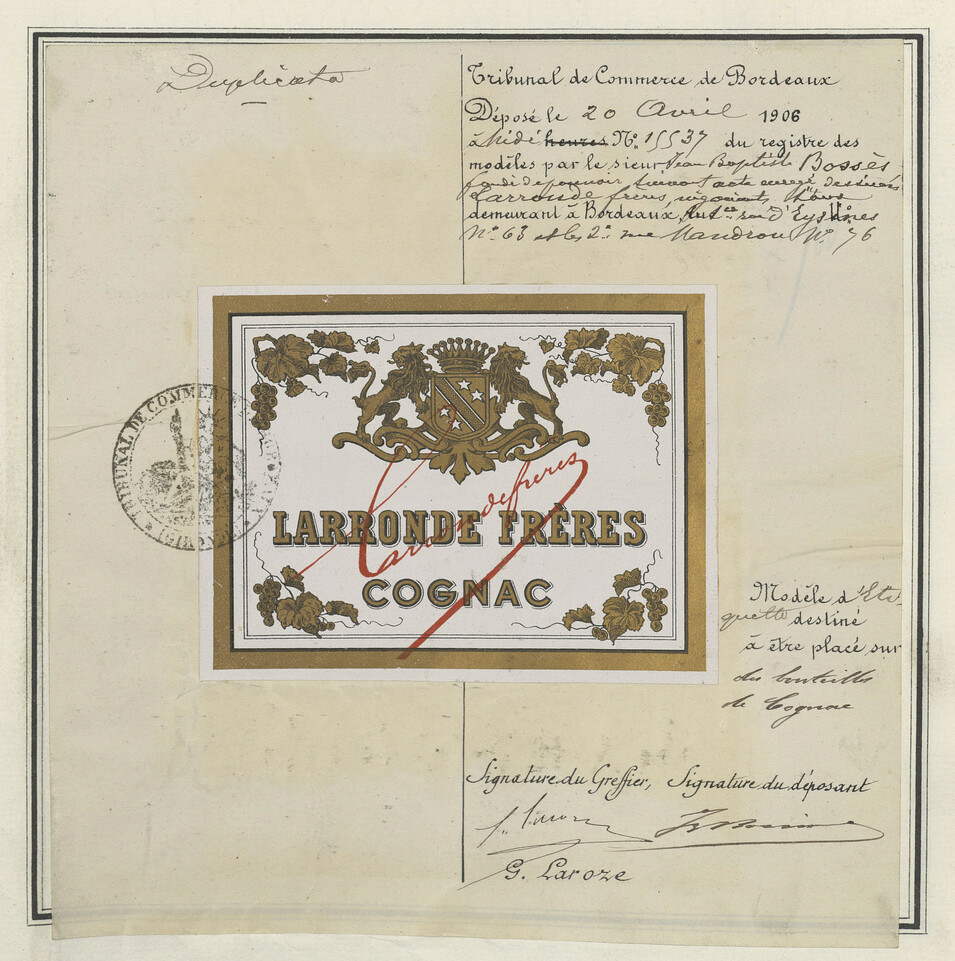 Duplicata
Tribunal de Commerce de Bordeaux
Déposé le 20 Avril 1906
à Midi heures N° 15537 du registre des
modèles par le sieur Jean Baptiste Bossès
fondé de pouvoir suivant acte enregé des sieurs
Larronde frères, négociants, tous
demeurant à Bordeaux, d'Eysines
N° 63 et les 2 rue Mandron N° 76
TRIBUNAL DE COMMERCE
LARRONDE FRÈRES
Larronde frères
COGNAC
Modèle d'Eti-
quette destiné
à être placé sur
des bouteilles
de Cognac
Signature du Greffier, Signature du déposant
G. Laroze